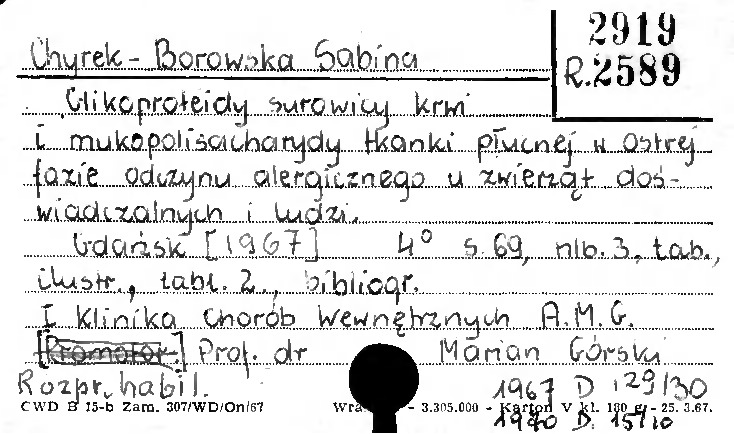 2919
Chyrek-Borowska Sabina R.2589
Glikoproteidy surowicy krwi
i mukopolisacharydy tkanki płucnej w ostrej
fazie odczynu alergicznego u zwierząt doś-
wiadczalnych i ludzi.
Gdańsk [1967] 4° s. 69, nlb. 3, tab.,
ilustr., tabl. 2., bibliogr.
I Klinika Chorób Wewnętrznych A.M.G.
[Promotor] Prof. dr Marian Górski
Rozpr. habil. 1967 D 129/30
CWD B 15-b Zam. 307/WD/On/67 - 3.305.000 - Karton V kl. 180 g - 25. 3.67.
1970 D. 15/10